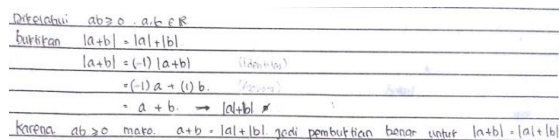 Diketahui ab ≥ 0 . a,b ∈ R
buktikan |a+b| = |a|+|b|
|a+b| = (-1) |a+b| (Identitas)
= (-1) a + (1) b.
= a + b. → |a|+|b|
Karena ab ≥ 0 maka. a+b = |a|+|b|. jadi pembuktian benar untuk |a+b| = |a|+|b|